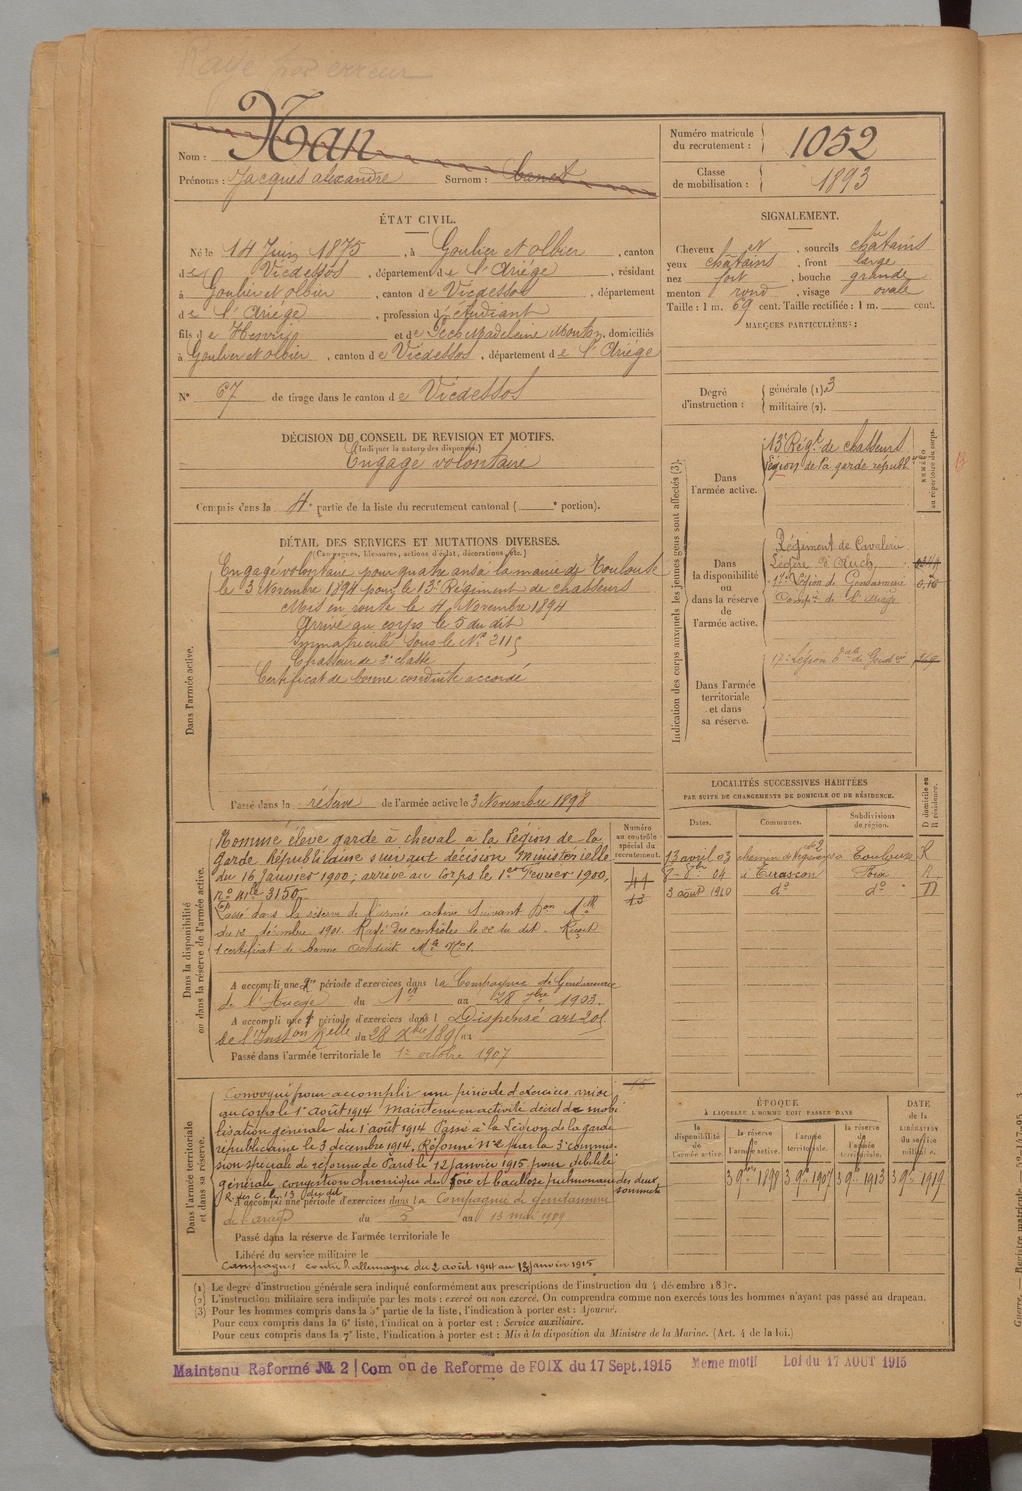 Rayé par erreur
Nom : Xan
Prénoms : Jacques alexandre Surnom : Canet
Numéro matricule du recrutement : 1052
Classe de mobilisation : 1893
ÉTAT CIVIL.
Né le 14 Juin 1875, à Goulier et olbier, canton
de Vicdessos, département de l'Ariège, résidant
à Goulier et olbier, canton de Vicdessos, département
de l'Ariège, profession d'étudiant
fils de et de Madeleine, domiciliés
à Goulier et olbier, canton de Vicdessos, département de l'Ariège
N° 67 de tirage dans le canton de Vicdessos
SIGNALEMENT.
Cheveux et, sourcils châtains
yeux châtains, front large
nez fort, bouche grande
menton rond, visage ovale
Taille : 1 m. 69 cent. Taille rectifiée : 1 m. cent.
MARQUES PARTICULIÈRES :
Degré d'instruction : générale (1) 3
militaire (2).
DÉCISION DU CONSEIL DE REVISION ET MOTIFS.
(Indiquer la nature des dispenses.)
Engagé volontaire
Compris dans la 4e partie de la liste du recrutement cantonal ( e portion).
DÉTAIL DES SERVICES ET MUTATIONS DIVERSES.
(Campagnes, blessures, actions d'éclat, décorations, etc.)
Dans l'armée active.
Engagé volontaire pour quatre ans à la mairie de Toulouse
le 3 Novembre 1894 pour le 13e Régiment de chasseurs
Mis en route le 4 Novembre 1894
Arrivé au corps le 5 du dit
Immatriculé sous le N° 2115
Chasseur de 2e classe
Certificat de bonne conduite accordé
Passé dans la réserve de l'armée active le 3 Novembre 1898
Indication des corps auxquels les jeunes gens sont affectés (3).
NUMÉRO au répertoire du corps.
Dans l'armée active.
13e Régt de chasseurs
Légion de la garde républ
Dans la disponibilité ou dans la réserve de l'armée active.
Régiment de Cavalerie
Légère d'Auch
17e Légion de Gendarmerie
Compie de l'Ariège
Dans l'armée territoriale et dans sa réserve.
17e Légion de Gendrie
LOCALITÉS SUCCESSIVES HABITÉES
PAR SUITE DE CHANGEMENTS DE DOMICILE OU DE RÉSIDENCE.
Dates. Communes. Subdivisions de région. D domicile ou R résidence.
13 avril 03 chemin de Toulouse R
8 04 à Tarascon Foix R
3 août 1910 do do D
Dans la disponibilité ou dans la réserve de l'armée active.
Numéro au contrôle spécial du recrutement.
Nommé élève garde à cheval à la Légion de la
garde Républicaine suivant décision Ministérielle
du 16 Janvier 1900, arrivé au Corps le 1er février 1900,
no mle 3150.
Passé dans la réserve de l'armée active suivant
du 12 décembre 1901. Rayé des contrôles le 22 du dit. Reçoit
1 certificat de bonne conduite
A accompli une 1re période d'exercices dans la Compagnie de Gendarmerie
de l'Ariège du 1er au 28 7bre 1903.
A accompli une période d'exercices dans l Dispensé art 201
de l'Inston du 28 Xbre 1895 au
Passé dans l'armée territoriale le 1er octobre 1907
Dans l'armée territoriale et dans sa réserve.
Convoqué pour accomplir une période d'exercices arrivé
au corps le 1er août 1914 Maintenu en activité décret de mobi
lisation générale du 1er août 1914 Passé à la Légion de la garde
républicaine le 3 décembre 1914. Réformé n° 2 par la 3e commis
sion spéciale de réforme de Paris le 12 janvier 1915 pour débilité
générale, congestion chronique du foie et bacillose pulmonaire des deux
sommets
R. des c. le 13 du dit
A accompli une période d'exercices dans la Compagnie de Gendarmerie
de l'Ariège du 5 au 13 mai 1909
Passé dans la réserve de l'armée territoriale le
Libéré du service militaire le
Campagnes contre l'allemagne du 2 août 1914 au 13 janvier 1915
ÉPOQUE
À LAQUELLE L'HOMME DOIT PASSER DANS
la disponibilité de l'armée active. la réserve de l'armée active. l'armée territoriale. la réserve de l'armée territoriale.
DATE de la LIBÉRATION du service militaire.
3 9bre 1898 3 9bre 1907 3 9bre 1913 3 9bre 1919
(1) Le degré d'instruction générale sera indiqué conformément aux prescriptions de l'instruction du 4 décembre 1889.
(2) L'instruction militaire sera indiquée par les mots : exercé ou non exercé. On comprendra comme non exercés tous les hommes n'ayant pas passé au drapeau.
(3) Pour les hommes compris dans la 5e partie de la liste, l'indication à porter est : Ajourné.
Pour ceux compris dans la 6e liste, l'indication à porter est : Service auxiliaire.
Pour ceux compris dans la 7e liste, l'indication à porter est : Mis à la disposition du Ministre de la Marine. (Art. 4 de la loi.)
Maintenu Reformé No. 2 Com on de Reforme de FOIX du 17 Sept. 1915 Meme motif Loi du 17 AOUT 1915